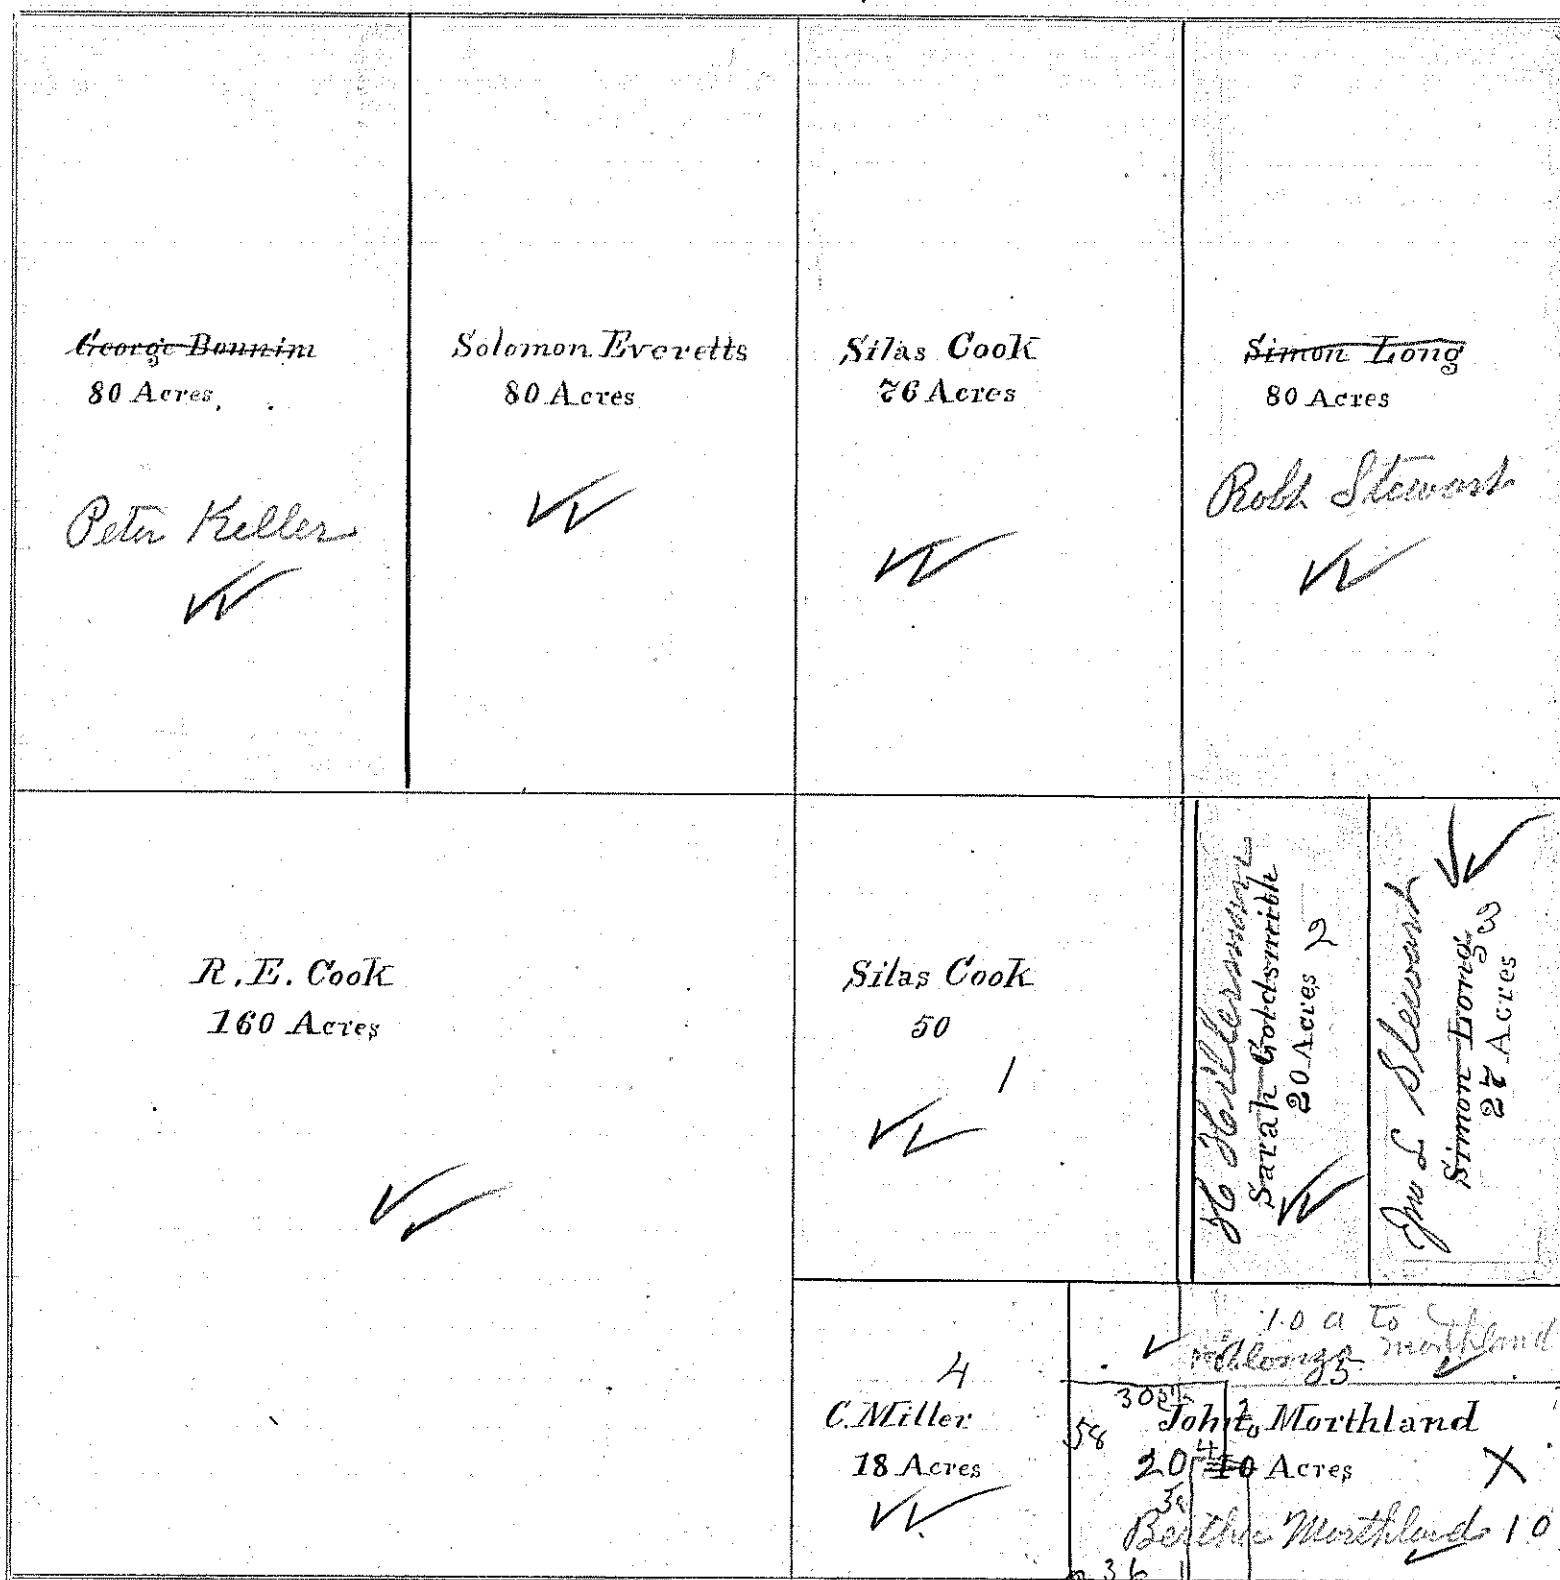 George Bonnim
80 Acres
Peter Keller
Solomon Everetts
80 Acres
Silas Cook
76 Acres
Simon Long
80 Acres
Robt Stewart
R. E. Cook
160 Acres
Silas Cook
50
1
H Hillerman
Sarah Goldsmith
20 Acres 2
Jno L Stewart
Simon Long 3
27 Acres
4
C. Miller
18 Acres
10 a to
Alonzo Morthland
5
John Morthland
20 Acres
X
Bertha Morthland 10
36